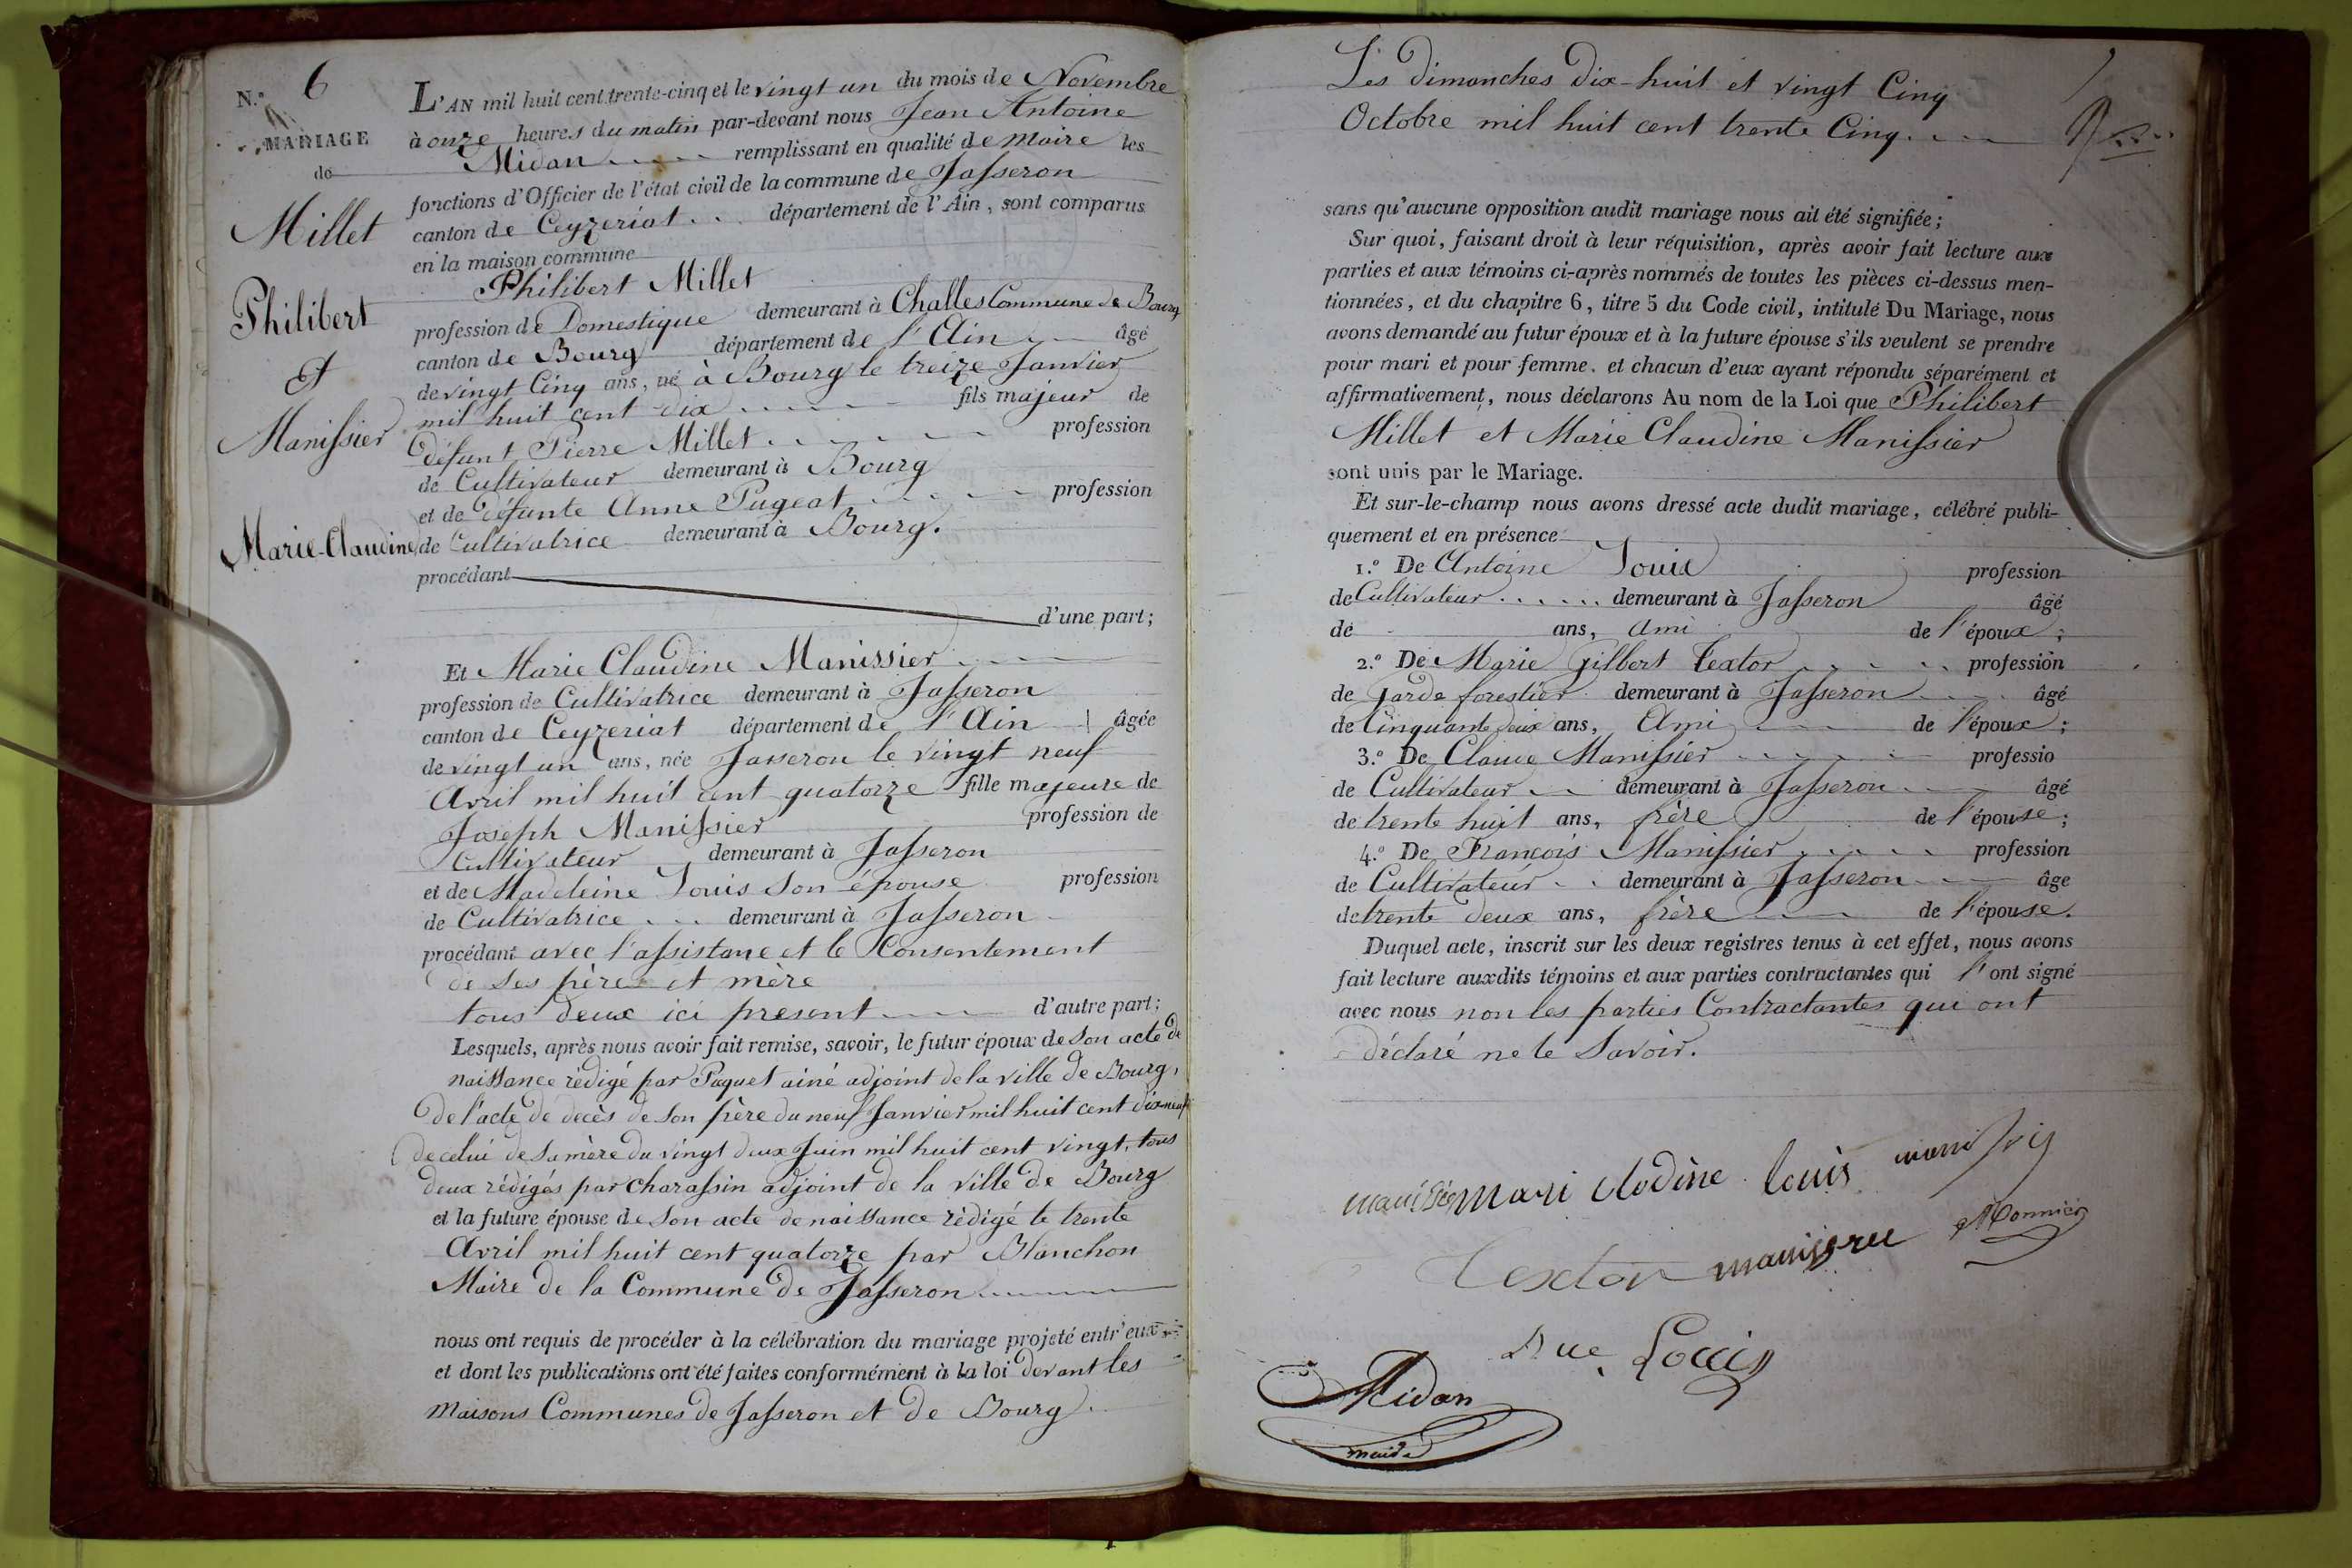 N.° 6
MARIAGE
de
Millet
Philibert
Et
Manissier
Marie-Claudine
L'AN mil huit cent trente-cinq et le vingt un du mois de Novembre
à onze heures du matin par-devant nous Jean Antoine
Midan remplissant en qualité de Maire les
fonctions d'Officier de l'état civil de la commune de Jasseron
canton de Ceyzeriat département de l'Ain, sont comparus
en la maison commune
Philibert Millet
profession de Domestique demeurant à Challes Commune de Bourg
canton de Bourg département de l'Ain âgé
de vingt Cinq ans, né à Bourg le treize Janvier
mil huit cent dix fils majeur de
défunt Pierre Millet profession
de Cultivateur demeurant à Bourg
et de défunte Anne Pugeat profession
de Cultivatrice demeurant à Bourg.
procédant
d'une part;
Et Marie Claudine Manissier
profession de Cultivatrice demeurant à Jasseron
canton de Ceyzeriat département de l'Ain âgée
de vingt un ans, née Jasseron le vingt neuf
Avril mil huit cent quatorze fille majeure de
Joseph Manissier profession de
Cultivateur demeurant à Jasseron
et de Madeleine Louis son épouse profession
de Cultivatrice demeurant à Jasseron
procédant avec l'assistance et le Consentement
de ses père et mère
tous deux ici present d'autre part;
Lesquels, après nous avoir fait remise, savoir, le futur époux de son acte de
naissance rédigé par Paquet ainé adjoint de la ville de Bourg,
De l'acte de decès de son père du neuf Janvier mil huit cent dix neuf
de celui de sa mère du vingt deux Juin mil huit cent vingt, tous
deux rédigés par charassin adjoint de la ville de Bourg
et la future épouse de son acte de naissance rédigé le trente
Avril mil huit cent quatorze par Blanchon
Maire de la Commune de Jasseron
nous ont requis de procéder à la célébration du mariage projeté entr'eux
et dont les publications ont été faites conformément à la loi devant les
Maisons Communes de Jasseron et de Bourg.
Les dimanches dix-huit et vingt Cinq
Octobre mil huit cent trente Cinq.
sans qu'aucune opposition audit mariage nous ait été signifiée;
Sur quoi, faisant droit à leur réquisition, après avoir fait lecture aux
parties et aux témoins ci-après nommés de toutes les pièces ci-dessus men-
tionnées, et du chapitre 6, titre 5 du Code civil, intitulé Du Mariage, nous
avons demandé au futur époux et à la future épouse s'ils veulent se prendre
pour mari et pour femme. et chacun d'eux ayant répondu séparément et
affirmativement, nous déclarons Au nom de la Loi que Philibert
Millet et Marie Claudine Manissier
sont unis par le Mariage.
Et sur-le-champ nous avons dressé acte dudit mariage, célébré publi-
quement et en présence
1.° De Antoine Louis profession
de Cultivateur demeurant à Jasseron âgé
de ans, Ami de l'époux;
2.° De Marie Gilbert Textor profession
de Garde forestier demeurant à Jasseron âgé
de Cinquante deux ans, Ami de l'époux;
3.° De Claude Manissier professio
de Cultivateur demeurant à Jasseron âgé
de trente huit ans, frère de l'épouse;
4.° De François Manissier profession
de Cultivateur demeurant à Jasseron âge
de trente deux ans, frère de l'épouse.
Duquel acte, inscrit sur les deux registres tenus à cet effet, nous avons
fait lecture auxdits témoins et aux parties contractantes qui l'ont signé
avec nous non les parties Contractantes qui ont
déclaré ne le Savoir.
mari clodine louis
Textor Monnier
Louis
Midan